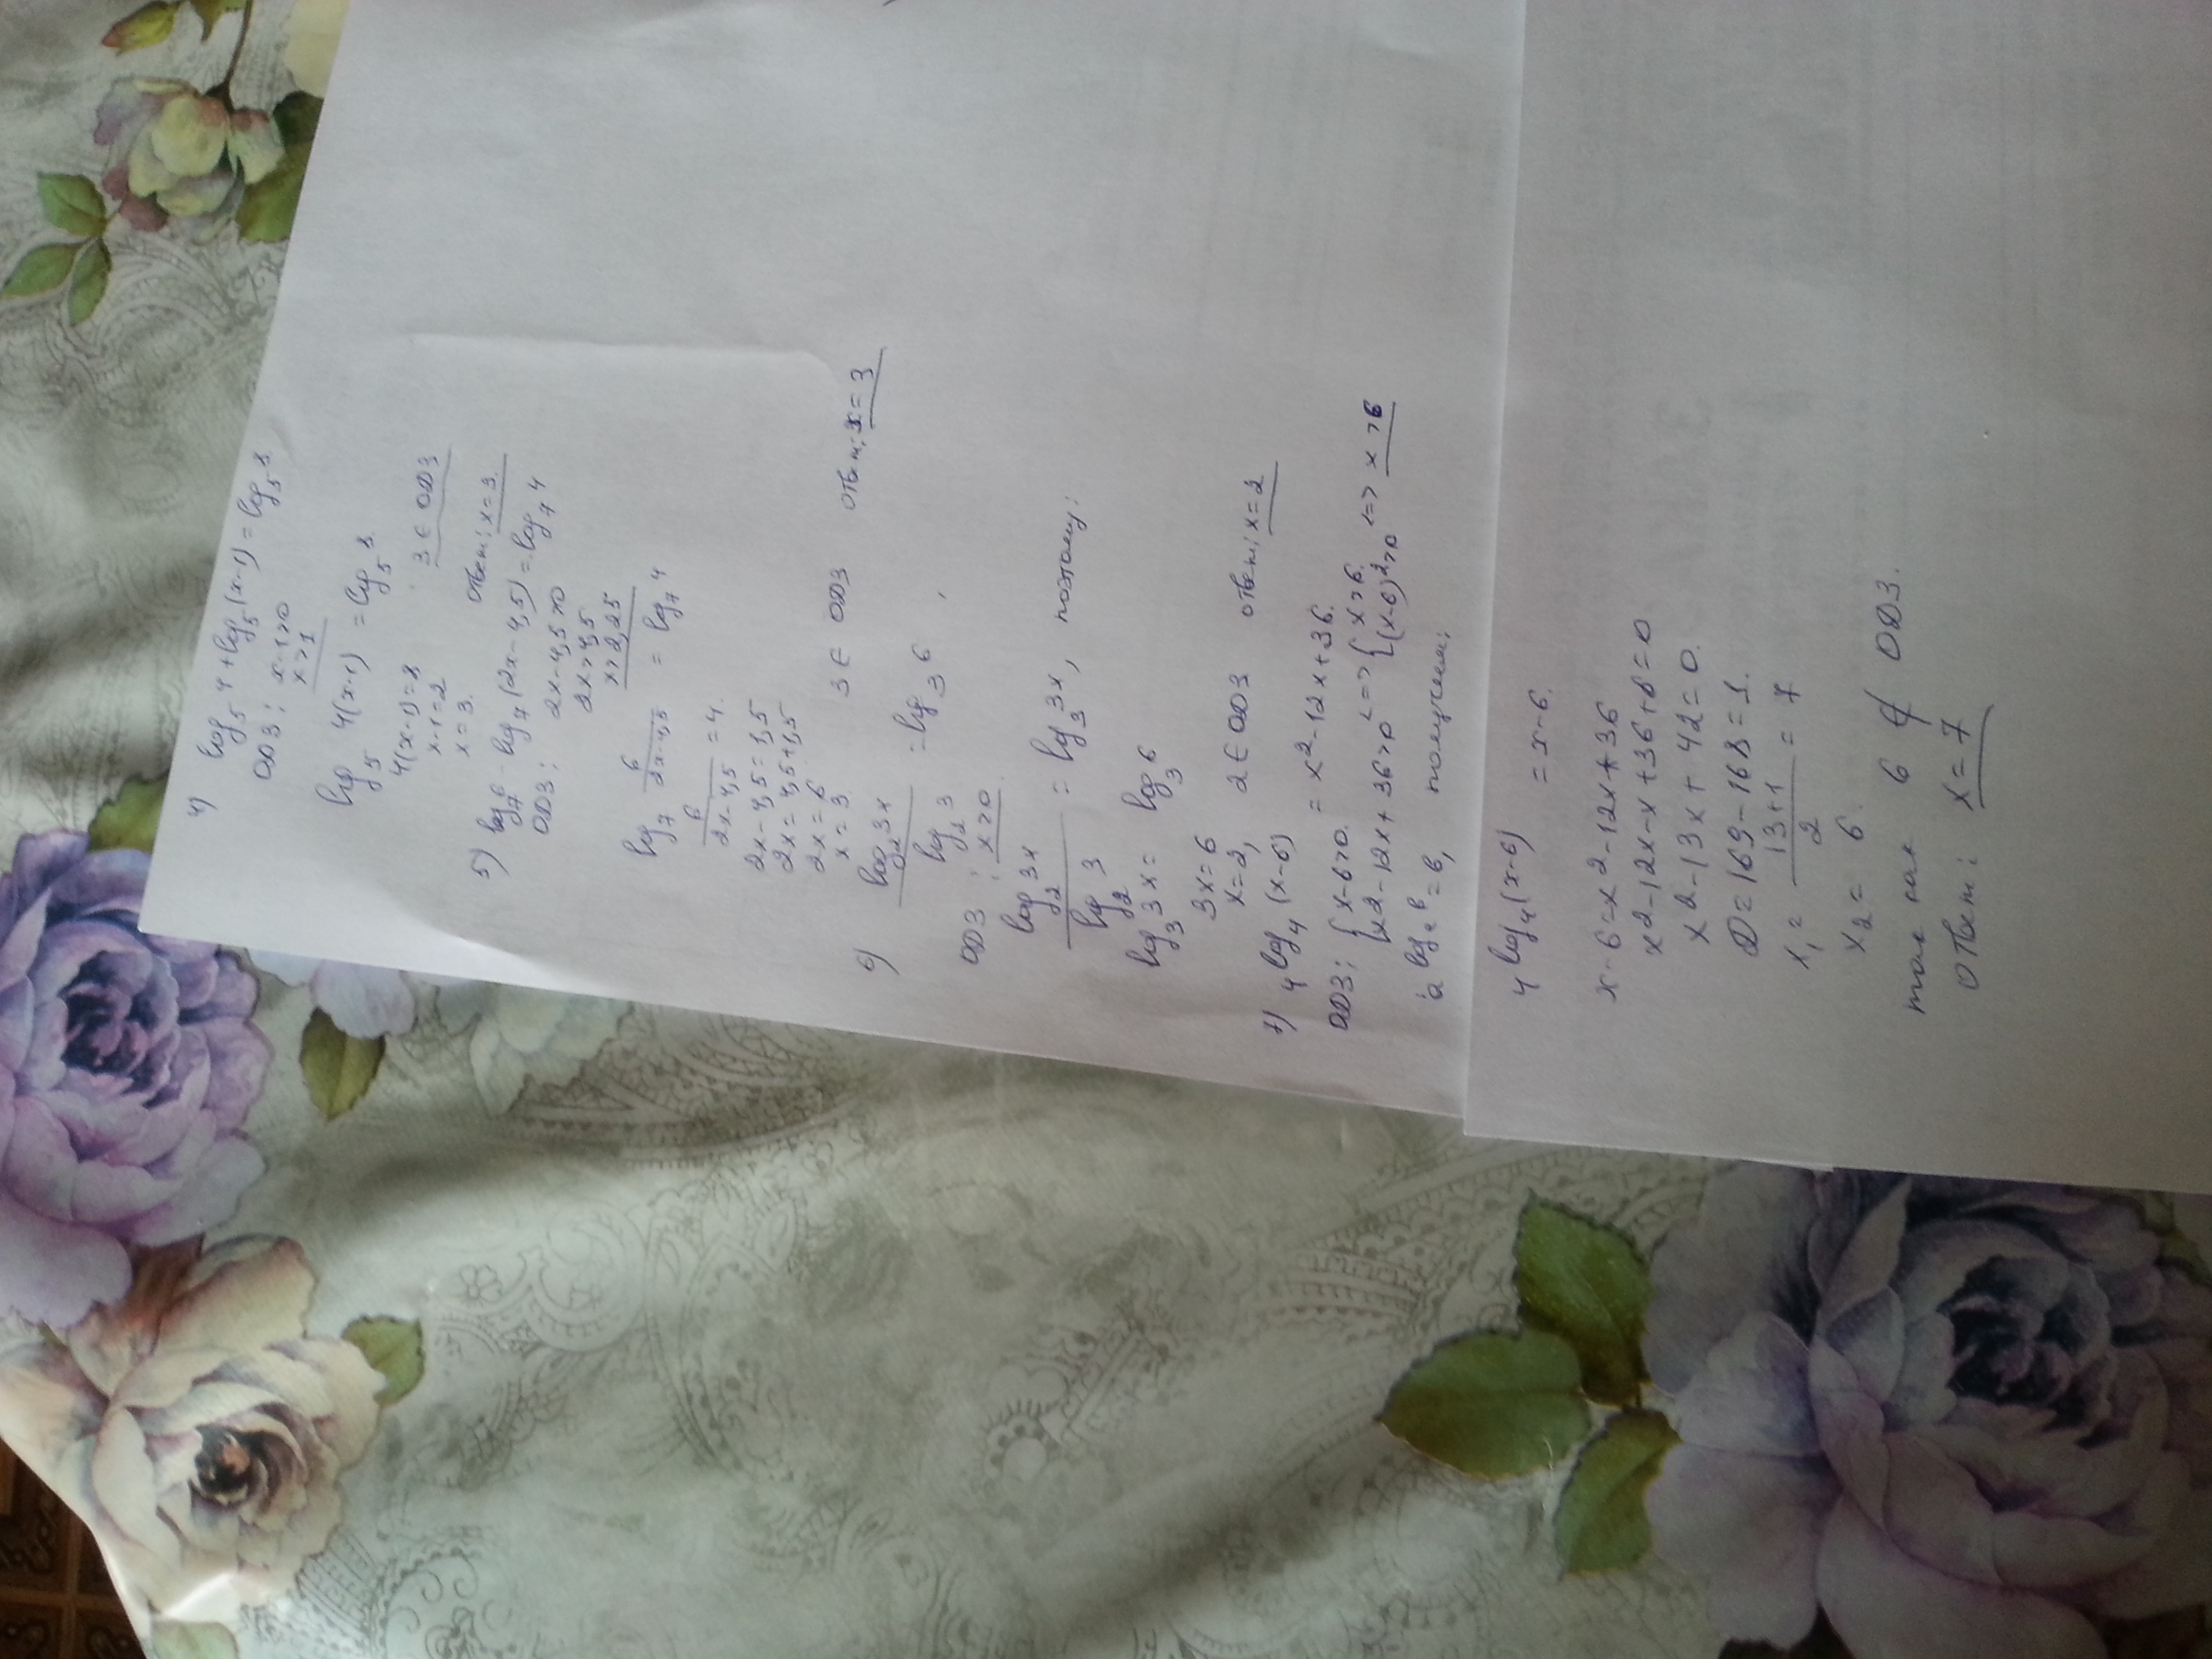 4) log₅4 + log₅(x-1) = log₅8
ОДЗ: x-1>0
x>1
log₅ 4(x-1) = log₅8
4(x-1)=8
x-1=2
x=3. 3 ∈ ОДЗ
ответ: x=3.
5) log₇6 - log₇(2x-4,5) = log₇4
ОДЗ: 2x-4,5>0
2x>4,5
x>2,25
log₇ 6/(2x-4,5) = log₇4
6/(2x-4,5) = 4.
2x-4,5=1,5
2x=4,5+1,5
2x=6
x=3 3 ∈ ОДЗ ответ: x=3
6) log₂3x / log₂3 = log₃6,
ОДЗ: x>0
log₂3x / log₂3 = log₃3x, поэтому:
log₃3x = log₃6
3x=6
x=2, 2 ∈ ОДЗ ответ: x=2
7) 4^log₄(x-6) = x²-12x+36.
ОДЗ: {x-6>0. x²-12x+36>0 <=> {x>6. (x-6)²>0 <=> x>6
a^logₐb = b, получаем:
4^log₄(x-6) = x-6.
x-6=x²-12x+36
x²-12x-x+36+6=0
x²-13x+42=0.
D=169-168=1.
x₁= (13+1)/2 = 7
x₂= 6.
так как 6 ∉ ОДЗ.
Ответ: x=7